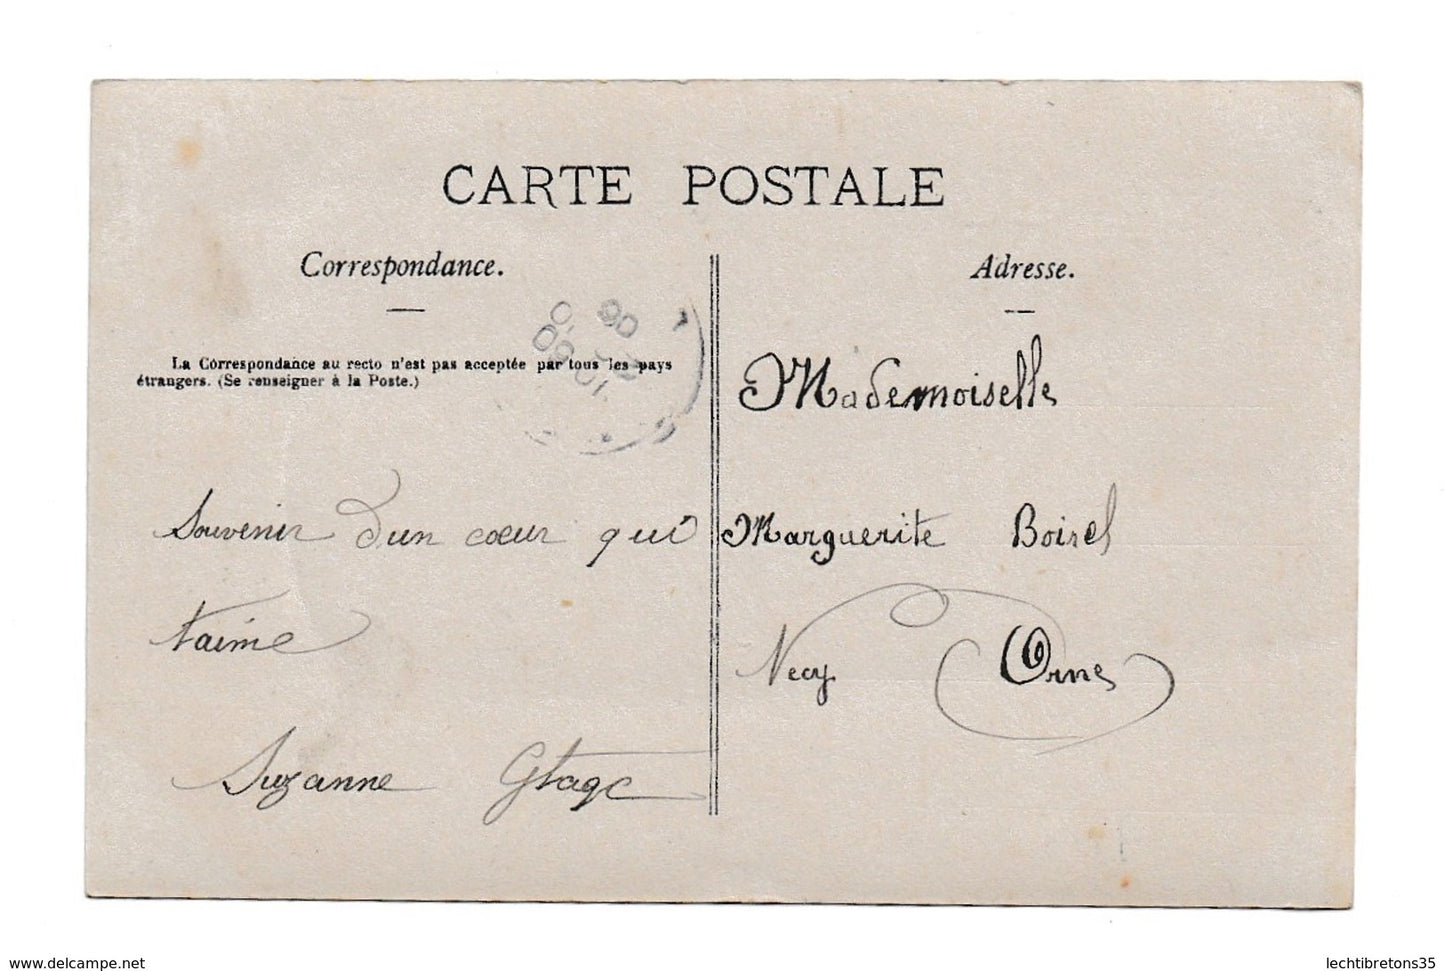 CARTE POSTALE
Correspondance.
La Correspondance au recto n'est pas acceptée par tous les pays
étrangers. (Se renseigner à la Poste.)
Souvenir d'un cœur qui
t'aime
Suzanne
Adresse.
Mademoiselle
Marguerite Boirel
Necy Orne
www.delcampe.net
lechtibretons35